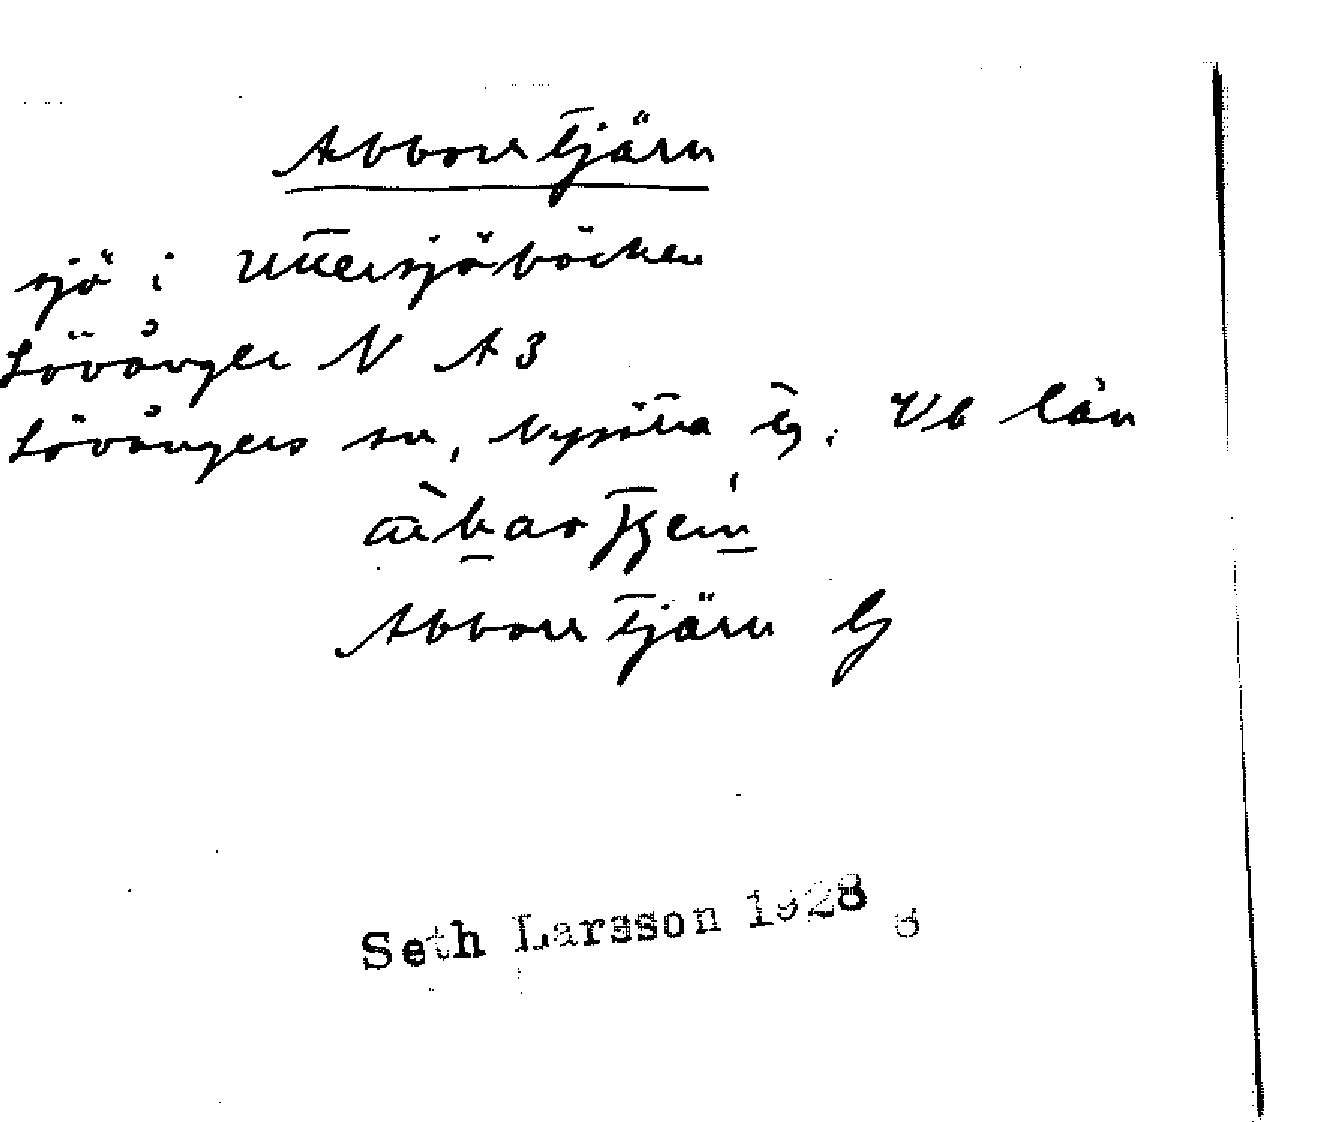 Abborrtjärn
sjö i Uttersjöbäcken
Lövånger N A 3
Lövångers sn, Nysätra tg. Vb län
Abborrtjärn
Seth Larsson 1928